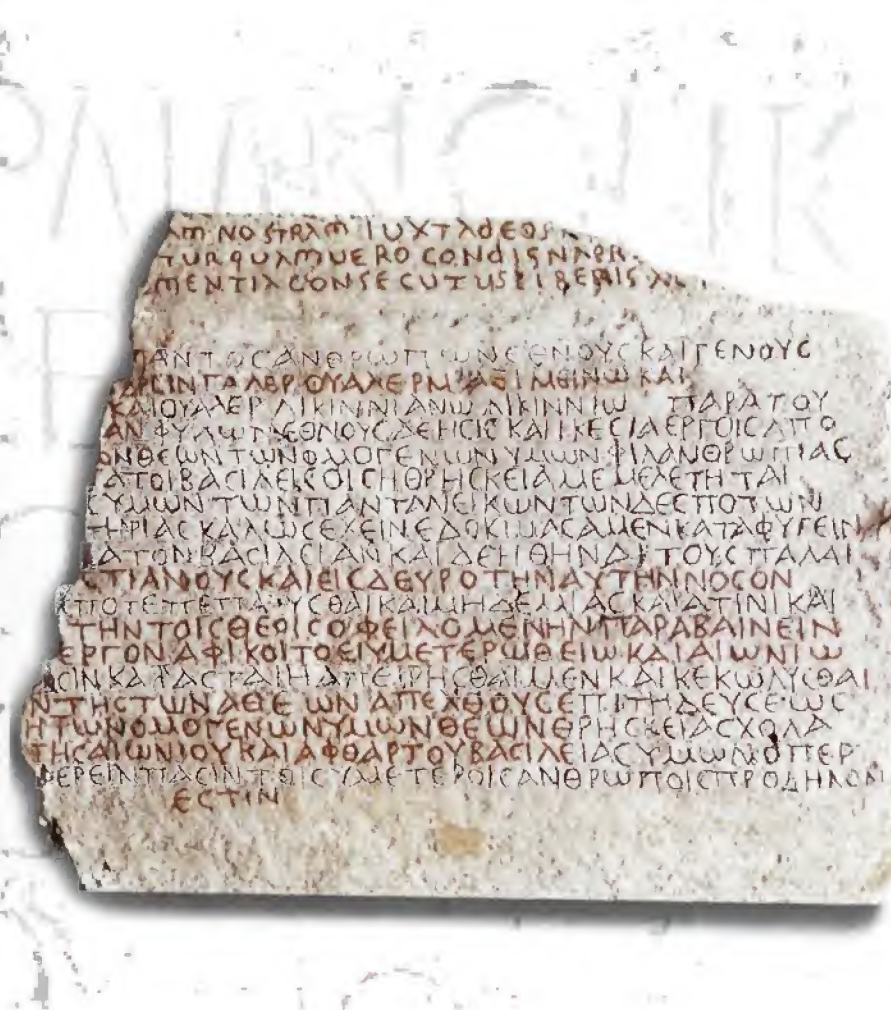 AM NOSTRAM IUXTA DEOS
TUR QUAM UERO CONDIGNA PR
MENTIA CONSECUTUS LIBERIS
ΠΑΝΤΟϹ ΑΝΘΡΩΠΩΝ ΕΘΝΟΥϹ ΚΑΙ ΓΕΝΟΥϹ
ΑΡϹΙΝ ΓΑΛΕΡ ΟΥΑΛΕΡ ΜΑΞΙΜΕΙΝΩ ΚΑΙ
ΚΑΙ ΟΥΑΛΕΡ ΛΙΚΙΝΝΙΑΝΩ ΛΙΚΙΝΝΙΩ ΠΑΡΑ ΤΟΥ
ΑΝΦΥΛΩΝ ΕΘΝΟΥϹ ΔΕΗϹΙϹ ΚΑΙ ΙΚΕϹΙΑ ΕΡΓΟΙϹ ΑΠΟ
ΩΝ ΘΕΩΝ ΤΩΝ ΟΜΟΓΕΝΩΝ ΥΜΩΝ ΦΙΛΑΝΘΡΩΠΙΑϹ
ΑΤΟΙ ΒΑϹΙΛΕΙϹ ΟΙϹ Η ΘΡΗϹΚΕΙΑ ΜΕΜΕΛΕΤΗΤΑΙ
ΥΜΩΝ ΤΩΝ ΠΑΝΤΑ ΝΕΙΚΩΝΤΩΝ ΔΕϹΠΟΤΩΝ
ΤΗΡΙΑϹ ΚΑΛΩϹ ΕΧΕΙΝ ΕΔΟΚΙΜΑϹΑΜΕΝ ΚΑΤΑΦΥΓΕΙΝ
ΑΤΟΝ ΒΑϹΙΛΕΙΑΝ ΚΑΙ ΔΕΗΘΗΝΑΙ ΤΟΥϹ ΠΑΛΑΙ
ϹΤΙΑΝΟΥϹ ΚΑΙ ΕΙϹ ΔΕΥΡΟ ΤΗΝ ΑΥΤΗΝ ΝΟϹΟΝ
ΠΟΤΕ ΠΕΠΑΥϹΘΑΙ ΚΑΙ ΜΗΔΕΜΙΑ ϹΚΑΙΑ ΤΙΝΙ ΚΑΙ
ΤΗΝ ΤΟΙϹ ΘΕΟΙϹ ΟΦΕΙΛΟΜΕΝΗΝ ΠΑΡΑΒΑΙΝΕΙΝ
ΕΡΓΟΝ ΑΦΙΚΟΙΤΟ ΕΙ ΥΜΕΤΕΡΩ ΘΕΙΩ ΚΑΙ ΑΙΩΝΙΩ
ϹΙΝ ΚΑΤΑϹΤΑΙΗ ΑΠΕΙΡΗϹΘΑΙ ΜΕΝ ΚΑΙ ΚΕΚΩΛΥϹΘΑΙ
Ν ΤΗϹ ΤΩΝ ΑΘΕΩΝ ΑΠΕΧΘΟΥϹ ΕΠΙΤΗΔΕΥϹΕΩϹ
Η ΤΩΝ ΟΜΟΓΕΝΩΝ ΥΜΩΝ ΘΕΩΝ ΘΡΗϹΚΕΙΑ ϹΧΟΛΑ
ΤΗϹ ΑΙΩΝΙΟΥ ΚΑΙ ΑΦΘΑΡΤΟΥ ΒΑϹΙΛΕΙΑϹ ΥΜΩΝ ΟΠΕΡ
ΦΕΡΕΙΝ ΠΑϹΙΝ ΤΟΙϹ ΥΜΕΤΕΡΟΙϹ ΑΝΘΡΩΠΟΙϹ ΠΡΟΔΗΛΟΝ
ΕϹΤΙΝ